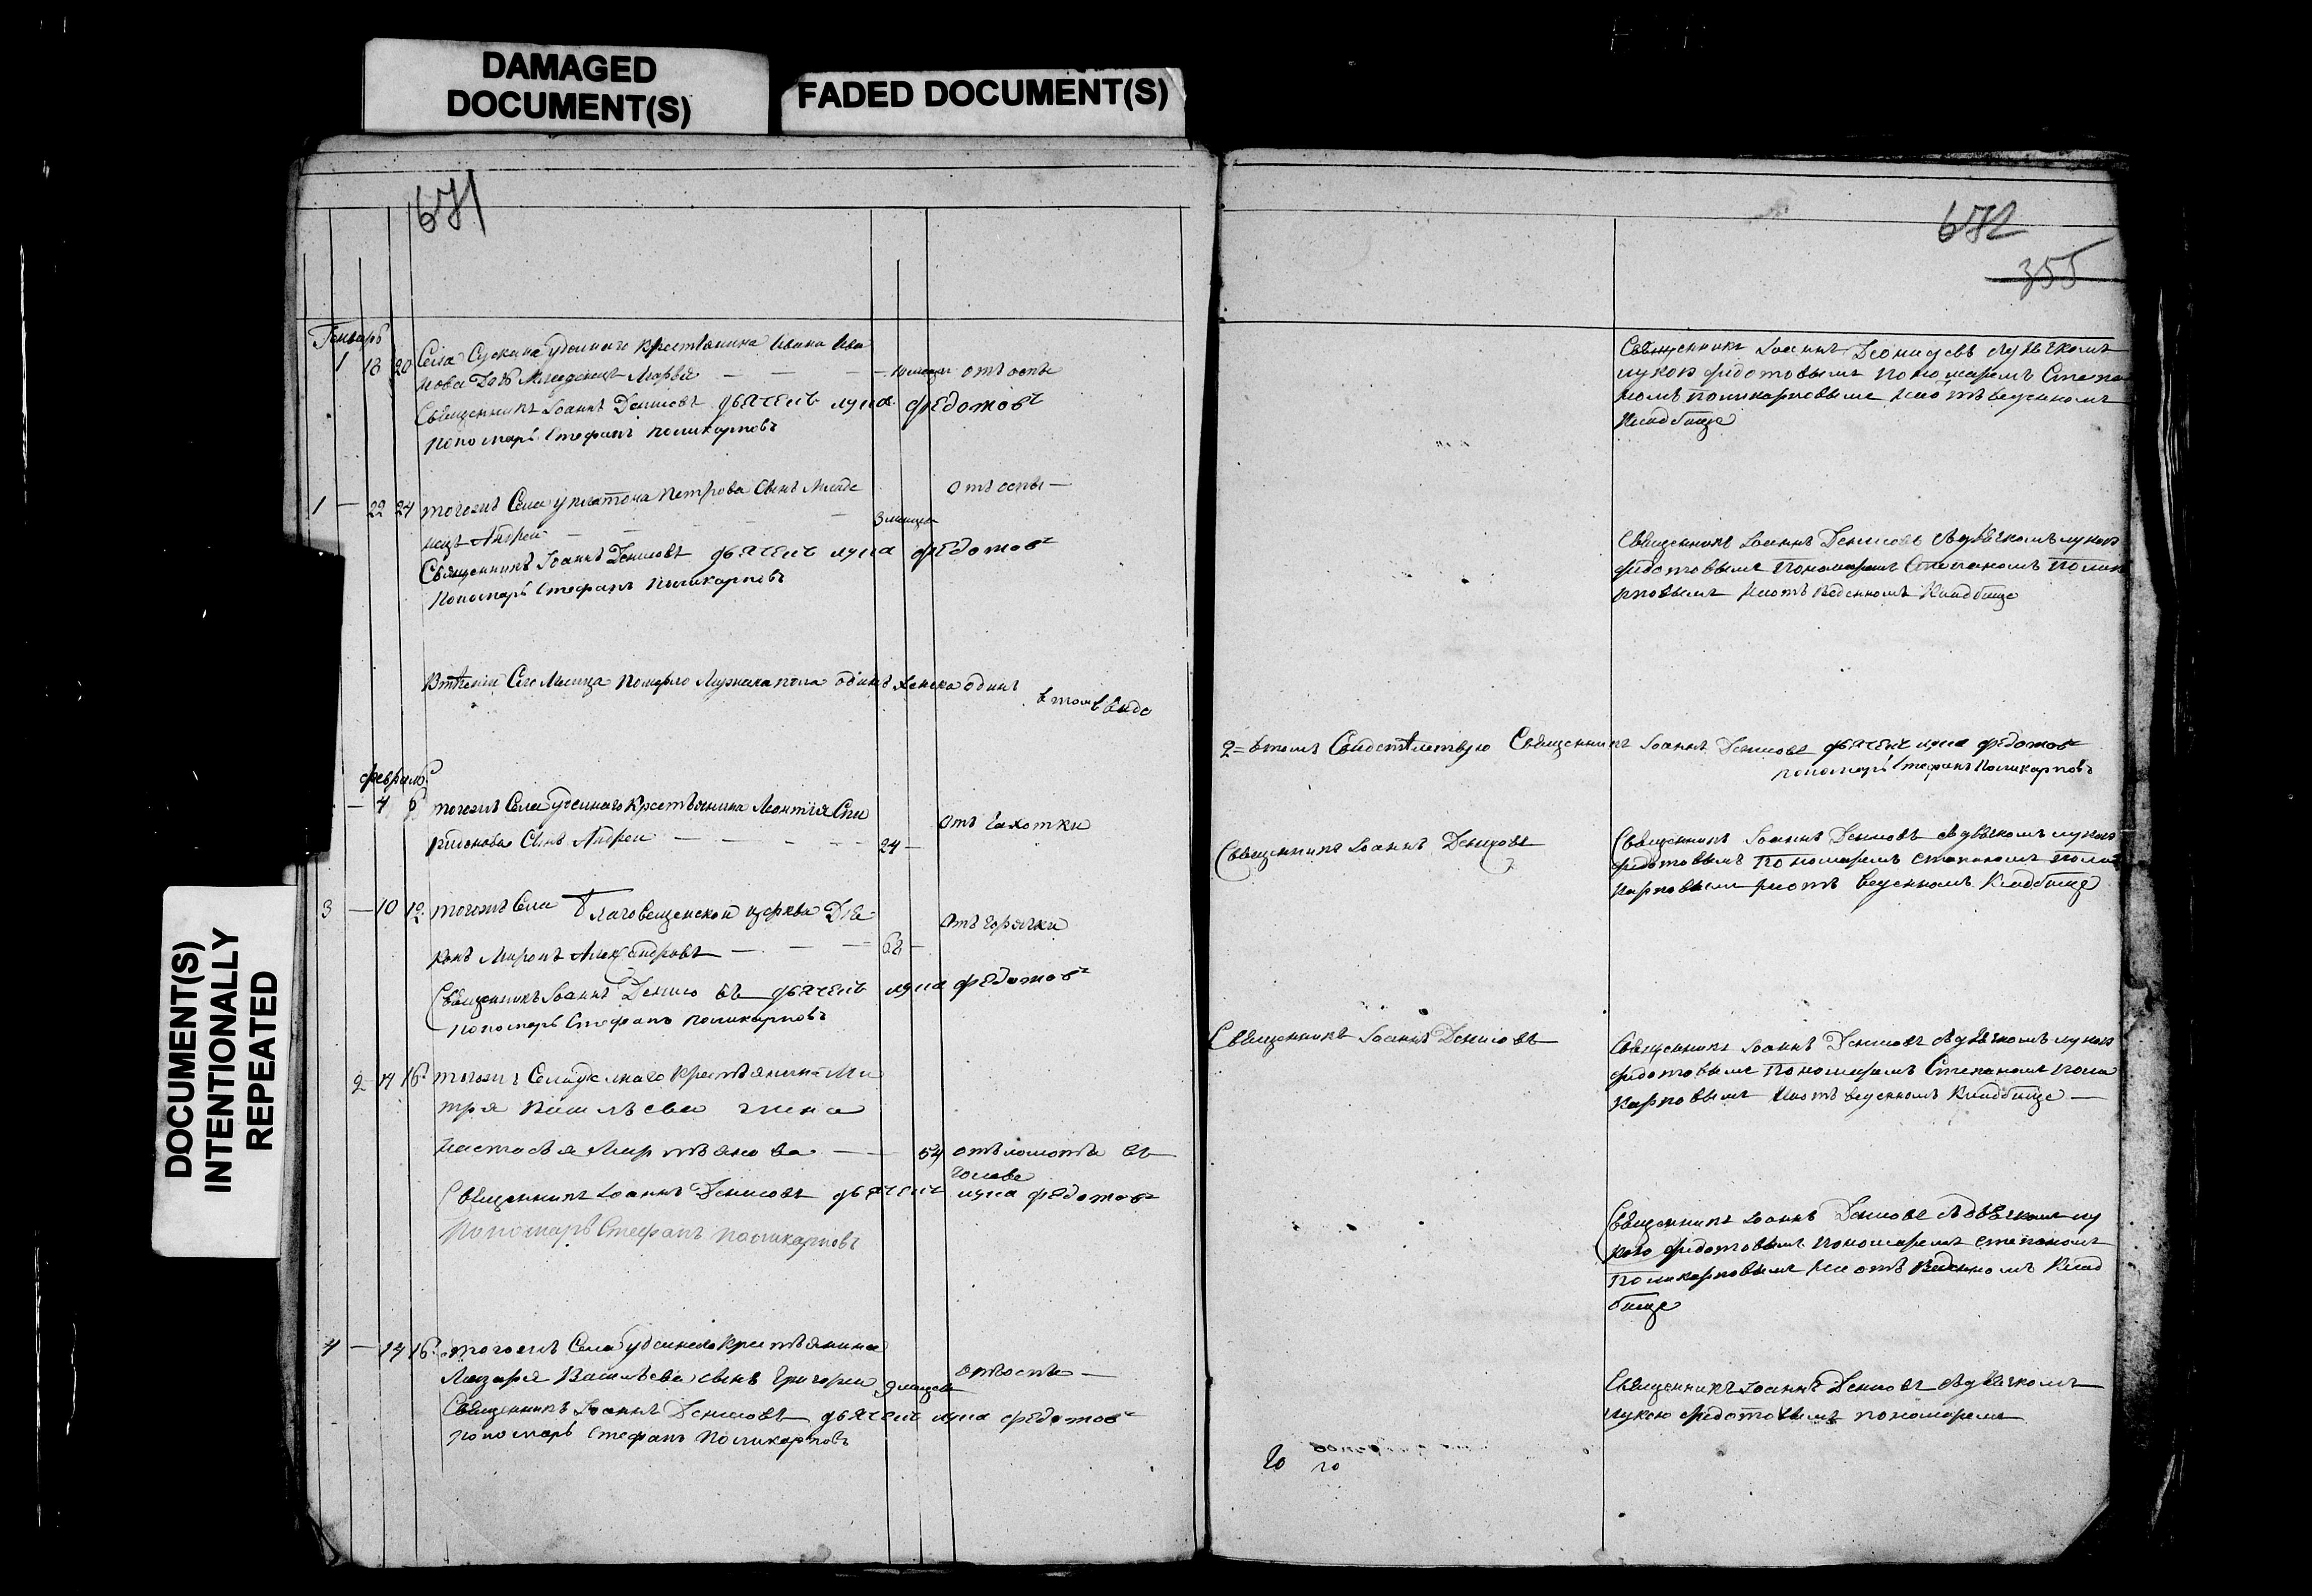 DAMAGED
DOCUMENT(S)
FADED DOCUMENT(S)
DOCUMENT(S)
INTENTIONALLY
REPEATED
671
Генварь
1 18 20 Села удельнаго крестьянина Ивана Ива
нова Дочь младенецъ Марья отъ оспы
Священникъ Iоаннъ Денисовъ дьячекъ лука федотовъ
пономарь Стефанъ поликарповъ
1 — 22 24 тогожъ Села у платона петрова Сынъ младе
нецъ Андрей — 3 месяца отъ оспы —
Священникъ Iоаннъ Денисовъ дьячекъ лука федотовъ
пономарь Стефанъ поликарповъ
Втечении Сего Месяца померло Мужеска пола одинъ женска одинъ
февраль
— 4 6 тогожъ Села удельнаго крестьянина Леонтия Спи
ридонова Сынъ Андрей — 24 — отъ чахотки
3 — 10 12 тогожъ Села Благовещенской церкви Дiа
конъ Миронъ Александровъ — отъ горячки
Священникъ Iоаннъ Денисовъ дьячекъ лука федотовъ
пономарь Стефанъ поликарповъ
2 14 16 тогожъ Села удельнаго крестьянина
жена
настасья Мартьянова — 54 отъ ломоты въ
голове
Священникъ Iоаннъ Денисовъ дьячекъ лука федотовъ
пономарь Стефанъ поликарповъ
4 — 14 16 тогожъ Села удельнаго крестьянина
Лазаря Васильева сынъ Григорей 9 месяцевъ отъ оспы —
Священникъ Iоаннъ Денисовъ дьячекъ лука федотовъ
пономарь Стефанъ поликарповъ
672
355
Священникъ Iоаннъ
лукою федотовымъ пономаремъ Степа
номъ поликарповымъ на отъведенномъ
кладбище
Священникъ Iоаннъ Денисовъ съ дьячкомъ лукою
федотовымъ пономаремъ Степаномъ полика
рповымъ на отъведенномъ кладбище
2 = втомъ Свидетелствую Священникъ Iоаннъ Денисовъ дьячекъ лука федотовъ
пономарь Стефанъ поликарповъ
Священникъ Iоаннъ Денисовъ
Священникъ Iоаннъ Денисовъ съ дьячкомъ лукою
федотовымъ пономаремъ степаномъ поли
карповымъ на отъведенномъ кладбище
Священникъ Iоаннъ Денисовъ
Священникъ Iоаннъ Денисовъ съ дьячкомъ лукою
федотовымъ пономаремъ Степаномъ поли
карповымъ на отъведенномъ кладбище —
Священникъ Iоаннъ Денисовъ съ дьячкомъ лу
кою федотовымъ пономаремъ степаномъ
поликарповымъ на отъведенномъ клад
бище
Священникъ Iоаннъ Денисовъ съ дьячкомъ
лукою федотовымъ пономаремъ